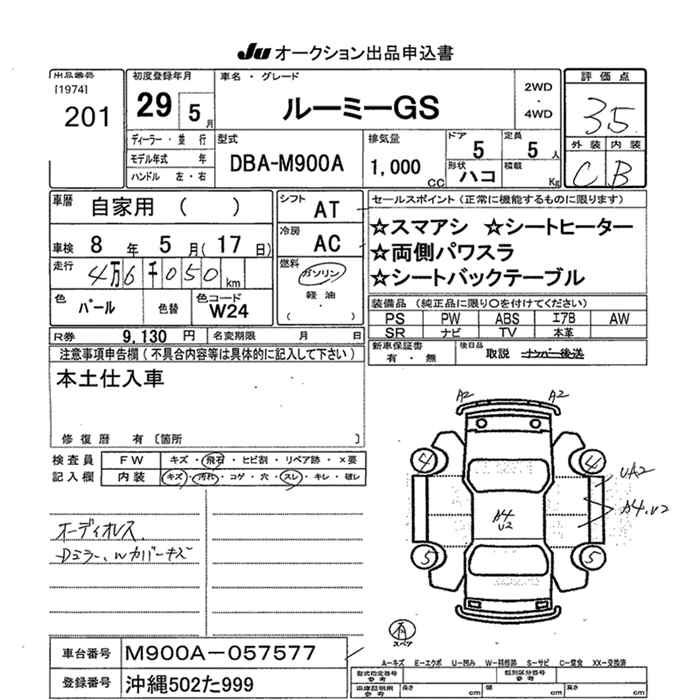 JU オークション出品申込書
出品番号 [1974] 201
初度登録年月 29 5月
車名・グレード ルーミーGS
2WD ・ 4WD
評価点 3.5
ディーラー・並行
モデル年式 年
ハンドル 左・右
型式 DBA-M900A
排気量 1,000 CC
ドア 5
定員 5人
形状 ハコ
積載 Kg
外装 内装
C B
車歴 自家用 ( )
シフト AT
セールスポイント (正常に機能するものに限ります)
☆スマアシ ☆シートヒーター
☆両側パワスラ
☆シートバックテーブル
車検 8年 5月(17日)
冷房 AC
走行 4万6千050km
燃料 ガソリン
軽油
色 パール
色替
色コード W24
装備品 (純正品に限り○を付けてください)
PS PW ABS エアB AW
SR ナビ TV 本革
R券 9,130円 名変期限 月 日
新車保証書 有・無
後日品 取説 ナンバー後送
注意事項申告欄(不具合内容等は具体的に記入して下さい)
本土仕入車
修復歴 有 〔箇所 〕
検査員記入欄
FW キズ・飛石・ヒビ割・リペア跡・×要
内装 キズ・汚れ・コゲ・穴・スレ・キレ・破レ
オーディオレス
Dミラー、Wカバーキズ
A2 A2
4 4
UA2
A4 U2
A4.U2
5 5
有 スペア
車台番号 M900A-057577
登録番号 沖縄502た999
A-キズ E-エクボ U-凹み W-補修跡 S-サビ C-腐食 XX-交換済
型式指定番号 参考
類別区分番号 参考
車庫証明用 参考
長さ cm
幅 cm
高さ cm